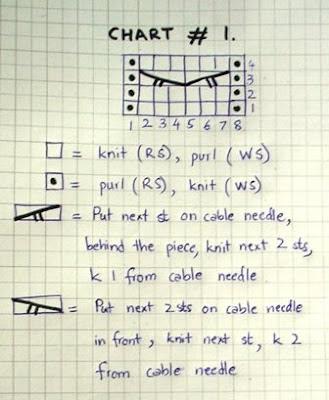 CHART # 1.
4
3
2
1
1 2 3 4 5 6 7 8
= knit (RS), purl (WS)
= purl (RS), knit (WS)
= Put next st on cable needle,
behind the piece, knit next 2 sts,
k 1 from cable needle
= Put next 2sts on cable needle
in front, knit next st, k 2
from cable needle